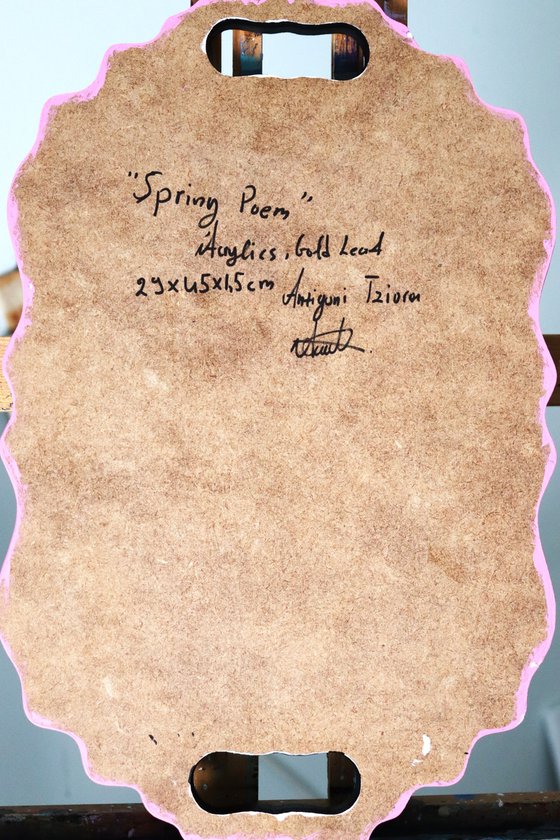 "Spring Poem"
Acrylics, Gold Leaf
29x45x1,5cm Antigoni Tziora